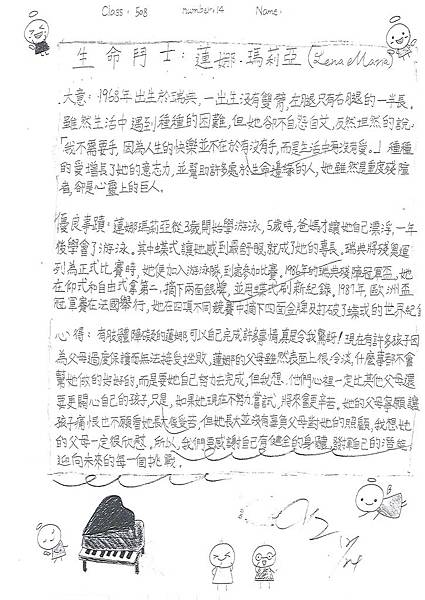 Class: 508 number: 14 Name:
生命鬥士:蓮娜.瑪莉亞(Lena Maria)
大意:1968年出生於瑞典,一出生沒有雙臂,左腿只有右腿的一半長。
雖然生活中遇到種種的困難,但她卻不自怨自艾,反然坦然的說:
「我不需要手,因為人生的快樂並不在於有沒有手,而是生活中有沒有愛。」種種
的愛增長了她的意志力,並幫助許多處於生命邊緣的人,她雖然是重度殘障
者,卻是心靈上的巨人。
優良事蹟:蓮娜瑪莉亞從3歲開始學游泳,5歲時,爸媽才讓她自己漂浮,一年
後學會了游泳。其中蝶式讓她感到最舒服,就成了她的專長。瑞典將殘奧運
列為正式比賽時,她便加入游泳隊,到處參加比賽。1986年的瑞典殘障冠軍盃,她
在仰式和自由式拿第一,摘下兩面銀獎,並用蝶式刷新紀錄。1987年,歐洲盃
冠軍賽在法國舉行,她在四項不同競賽中摘下四面金牌及打破了蝶式的世界紀錄
心得:有肢體障礙的蓮娜可以自己完成許多事情,真是令我驚訝!現在有許多孩子因
為父母過度保護而無法接受挫敗,蓮娜的父母雖然表面上很冷淡,什麼事都不會
幫她做的好好的,而是要她自己努力去完成,但我想:他們心裡一定比其他父母還
要更關心自己的孩子,只是,如果她現在不努力嘗試,將來會更辛苦。她的父母寧願讓
孩子痛恨也不願看她長大後受苦,但她長大並沒有辜負父母對她的照顧,我想她
的父母一定很欣慰,所以,我們要感謝自己有健全的身體,
迎向未來的每一個挑戰。